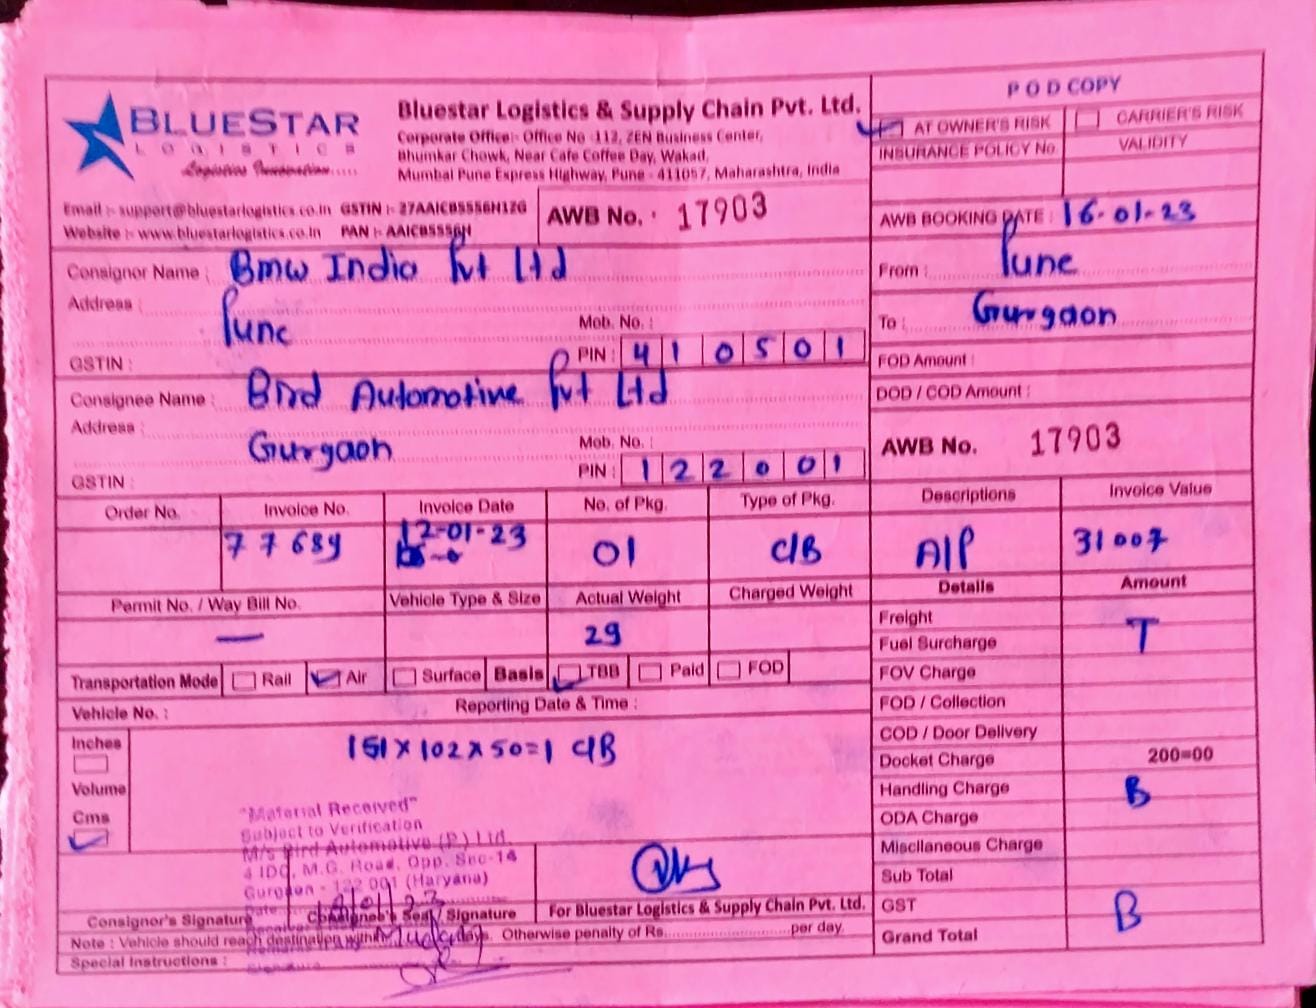 BLUESTAR
LOGISTICS
Logistics Innovation.....
Bluestar Logistics & Supply Chain Pvt. Ltd.
Corporate Office:- Office No -112, ZEN Business Center,
Bhumkar Chowk, Near Cafe Coffee Day, Wakad,
Mumbai Pune Express Highway, Pune - 411057, Maharashtra, India
POD COPY
AT OWNER'S RISK CARRIER'S RISK
INSURANCE POLICY No. VALIDITY
Email :- support@bluestarlogistics.co.in GSTIN :- 27AAICB5556H1ZG
Website :- www.bluestarlogistics.co.in PAN :- AAICB5556H
AWB No. 17903
AWB BOOKING DATE : 16-01-23
Consignor Name : Bmw India Pvt Ltd
From : Pune
Address : Pune
Mob. No. :
To : Gurgaon
GSTIN : PIN : 410501
FOD Amount :
Consignee Name : Bird Automotive Pvt Ltd
DOD / COD Amount :
Address : Gurgaon
Mob. No. :
AWB No. 17903
GSTIN : PIN : 122001
Order No. Invoice No. Invoice Date No. of Pkg. Type of Pkg. Descriptions Invoice Value
77689 12-01-23 01 C/B A/P 31007
Permit No. / Way Bill No. Vehicle Type & Size Actual Weight Charged Weight Details Amount
— 29
Freight
Fuel Surcharge T
Transportation Mode Rail Air Surface Basis TBB Paid FOD
FOV Charge
Vehicle No. : Reporting Date & Time :
FOD / Collection
COD / Door Delivery
Inches
Volume
Cms
151 x 102 x 50=1 C/B
Docket Charge 200=00
Handling Charge B
ODA Charge
Miscllaneous Charge
Sub Total
GST B
Grand Total
"Material Received"
Subject to Verification
M/s Bird Automotive (P.) Ltd.
4 IDC, M.G. Road, Opp. Sec-14
Gurgaon - 122 001 (Haryana)
Date
Consignor's Signature Consignee's Seal / Signature For Bluestar Logistics & Supply Chain Pvt. Ltd.
Note : Vehicle should reach destination within days. Otherwise penalty of Rs. per day.
Special Instructions :